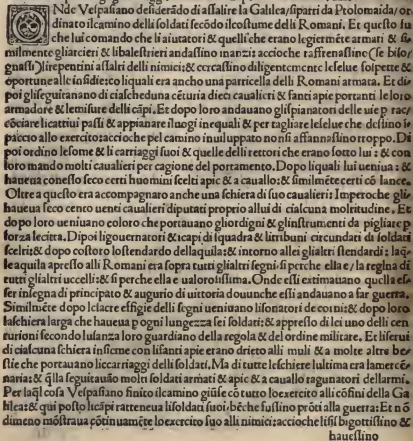 ONde Vespasiano desiderādo di assalire la Galilea, si parti da Ptolomaida / or
dinato il camino delli soldati secōdo il costume delli Romani. Et questo fu
che lui comando che li aiutatori & quelli che erano legiermēte armati & si
milmente gli arcieri & li balestrieri andassino inanzi: accioche raffrenassino (se biso
gnassi) li repentini assalti delli nimici: & cercassino diligentemente le selue sospette &
oportune alle insidie: co liquali era ancho una particella delli Romani armata. Et di
poi gli seguitauano di ciascheduna cēturia dieci caualieri & fanti a pie portanti le loro
armadore & le misure delli cāpi. Et dopo loro andauano gli spianatori delle uie p rac/
cōciare li cattiui passi & appianare i luogi inequali & per tagliare le selue che dessino i
paccio allo exercito: accioche pel camino inuiluppato non si affannassino troppo. Di
poi ordino le some & li carriaggi suoi & quelle delli rettori che erano sotto lui: & con
loro mando molti caualieri per cagione del portamento. Dopo liquali lui ueniua: &
haueua con esso seco certi huomini scelti a pie & a cauallo: & similmēte certi cō lance.
Oltre a questo era accompagnato anche una schiera di suo caualieri: Imperoche gli
haueua seco cento uenti caualieri diputati proprio allui di ciascuna molritudine. Et
do po loro ueniuano coloro che portauano gli ordigni & gli instrumenti da pigliare p
forza le citta. Dipoi li gouernatori & i capi di squadra & li tribuni circundati di soldati
scelti: & dopo costoro lo stendardo dellaquila: & intorno allei gli altri stendardi: laq̄
le aquila apresso alli Romani era sopra tutti gli altri segni: si perche ella e / la regina di
tutti gli altri uccelli: & si perche ella e ualorosissima. Onde essi extimauano quella es/
ser insegna di principato & augurio di uittoria douunche essi andauano a far guerra.
Similmēte dopo le sacre effigie delli segni ueniuano li sonatori de corni: & dopo loro
la schiera larga che haueua p ogni lunghezza sei soldati: & appresso di lei uno delli cen
turioni secondo lusanza loro guardando della regola & del ordine militare. Et li serui
di ciascuna schiera insieme con li fanti a pie erano drieto alli muli & a molte altre be/
stie che portauano li carriaggi delli soldati. Ma di tutte le schiere lultima era la merce⸗
naria: & q̄lla seguitauāo molti soldati armati & a pie & a cauallo ragunatori dellarmi.
Per laq̄l cosa Vespasiano finito il camino giūse cō tutto lo exercito alli cōfini della Ga
lilea: & qui posto lo cāpi ratteneua li soldati suoi: bēche fussino prōti alla guerra: Et nō
dimeno mostraua cōtinuamēte lo exercito suo alli nimici: accioche issi bigottissino &
hauessino